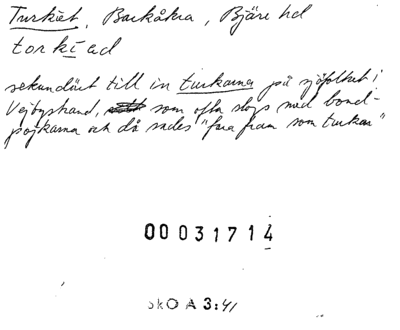 Turkiet, Barkåkra, Bjäre hd
torkiad
sekundärt till in turkarna på sjöfolket i
Vejbystrand, som ofta slogs med bond-
pojkarna och då sades "fara fram som turkar"
00031714
SkO A 3:41